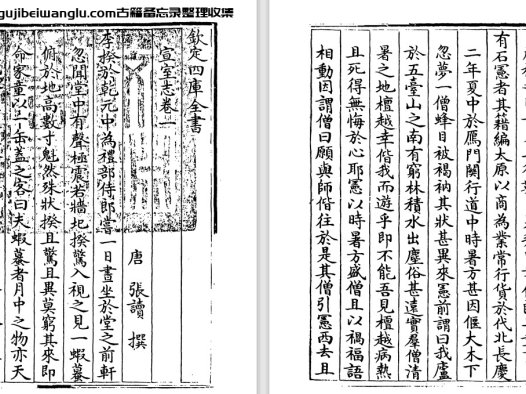 gujibeiwanglu.com古籍备忘录整理收集
欽定四庫全書
宣室志卷一
唐 張讀 撰
李揆於乾元中為禮部侍郎嘗一日晝坐於堂之前軒
忽聞堂中有聲極震若牆圯揆驚入視之見一蝦蟇
俯於地高數寸魁然殊狀揆且驚且異莫窮其來即
命家童以一缶蓋之客曰夫蝦蟇者月中之物亦天
有石憲者其籍編太原以商為業常行貨於代北長慶
二年夏中於鴈門關行道中時暑方甚因偃大木下
忽夢一僧蜂目被褐衲其狀甚異來憲前謂曰我廬
於五臺山之南有窮林積水出塵俗甚遠實羣僧清
暑之地檀越幸偕我而遊乎即不能吾見檀越病熱
且死得無悔於心耶憲以時暑方盛僧且以禍福語
相動因謂僧曰願與師偕往於是其僧引憲西去且